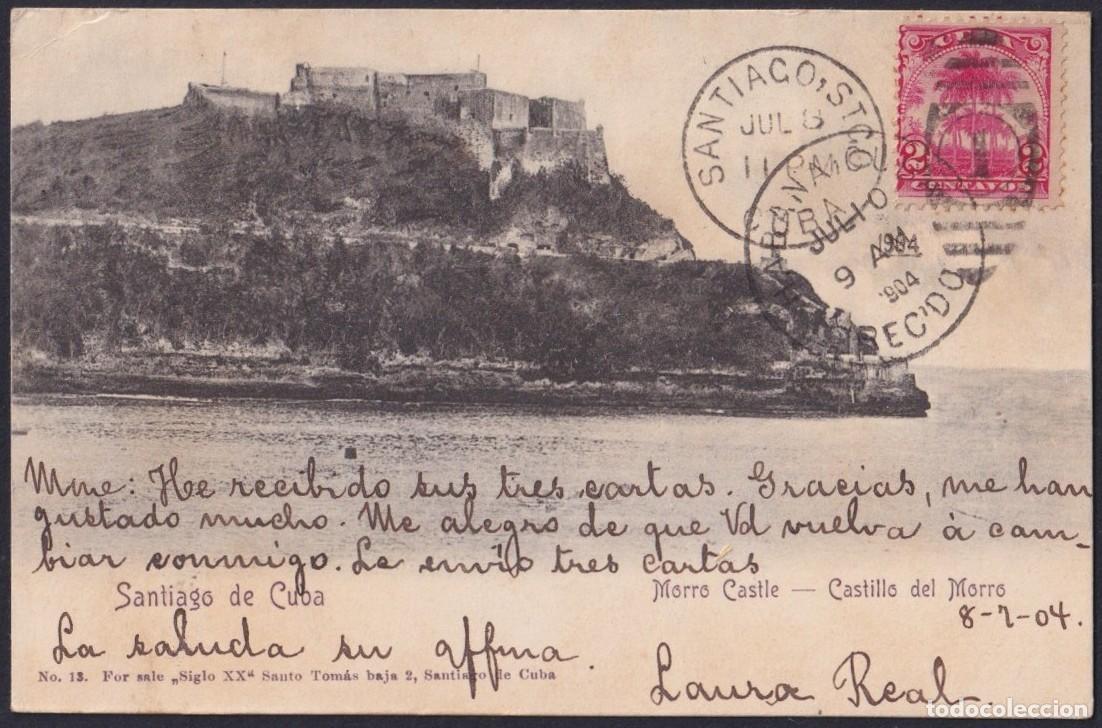 SANTIAGO, STCO
JUL 8
11
CUBA
2 CENTAVOS 2
HABANA
JUL 10
9 AM
904
REC'D
Mme: He recibido sus tres cartas. Gracias, me han
gustado mucho. Me alegro de que Vd vuelva á cam-
biar conmigo. Le envio tres cartas
Santiago de Cuba
Morro Castle — Castillo del Morro
8-7-04.
La saluda su affma.
Laura Real-
No. 13. For sale „Siglo XX“ Santo Tomás baja 2, Santiago de Cuba
todocoleccion